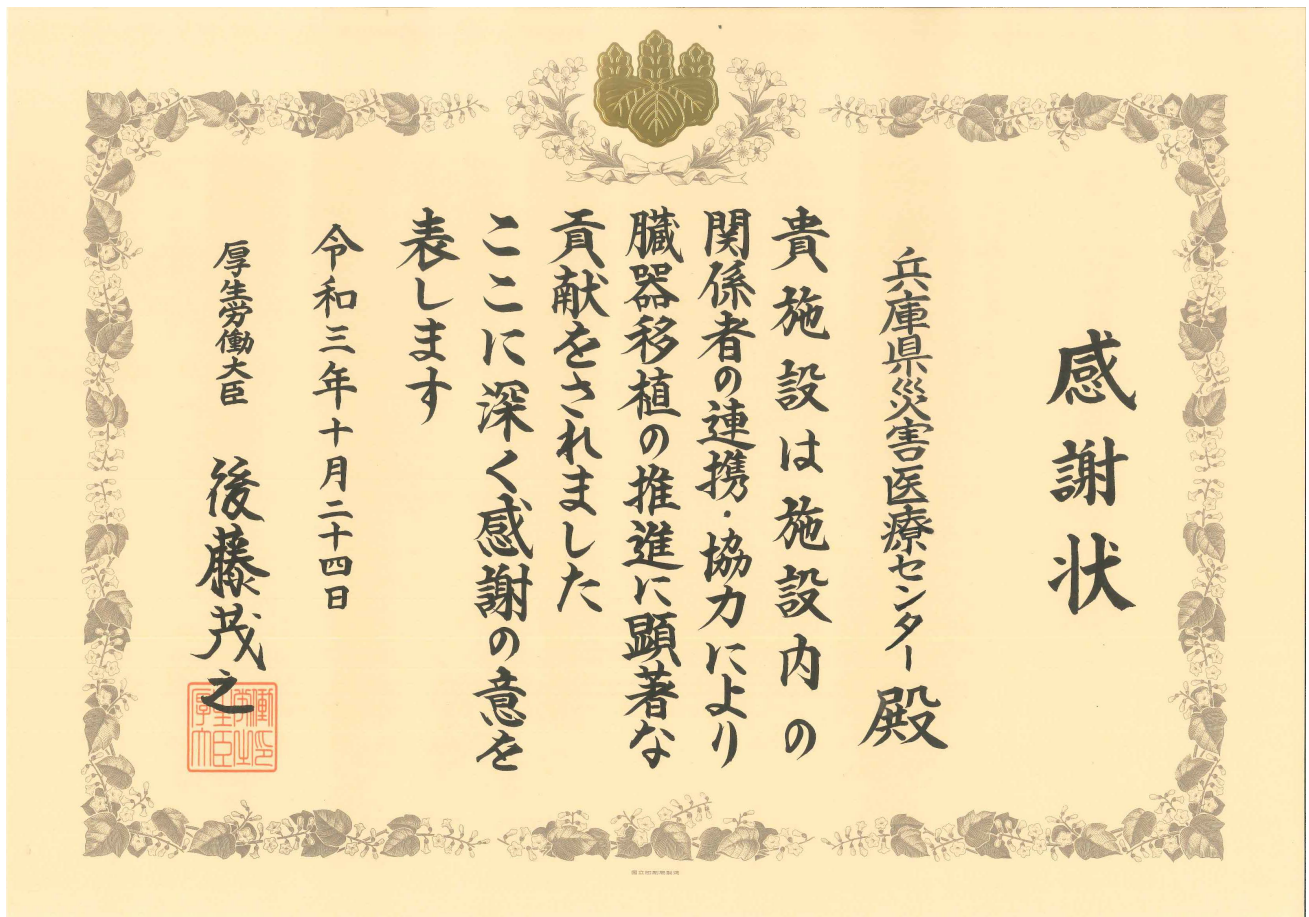 感謝状
兵庫県災害医療センター殿
貴施設は施設内の
関係者の連携・協力により
臓器移植の推進に顕著な
貢献をされました
ここに深く感謝の意を
表します
令和三年十月二十四日
厚生労働大臣 後藤茂之